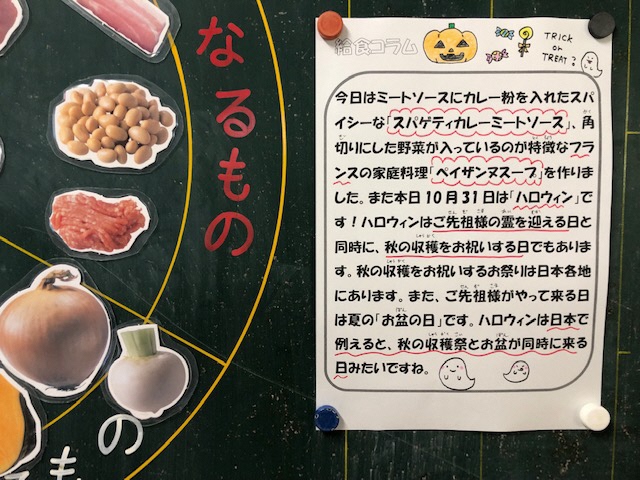 なるもの
も
の
給食コラム
TRICK
or
TREAT?
今日はミートソースにカレー粉を入れたスパ
イシーな「スパゲティカレーミートソース」、角
切りにした野菜が入っているのが特徴なフラ
ンスの家庭料理「ペイザンヌスープ」を作りま
した。また本日10月31日は「ハロウィン」で
す！ハロウィンはご先祖様の霊を迎える日と
同時に、秋の収穫をお祝いする日でもありま
す。秋の収穫をお祝いするお祭りは日本各地
にあります。また、ご先祖様がやって来る日
は夏の「お盆の日」です。ハロウィンは日本で
例えると、秋の収穫祭とお盆が同時に来る
日みたいですね。